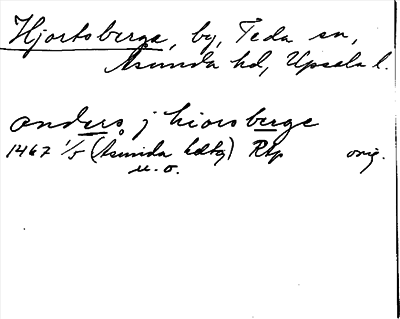 Hjortsberga, by, Teda sn,
Åsunda hd, Upsala l.
anders j hiorsberge
1467 1/5 (Åsunda hdtg) Rtp orig.
u. o.